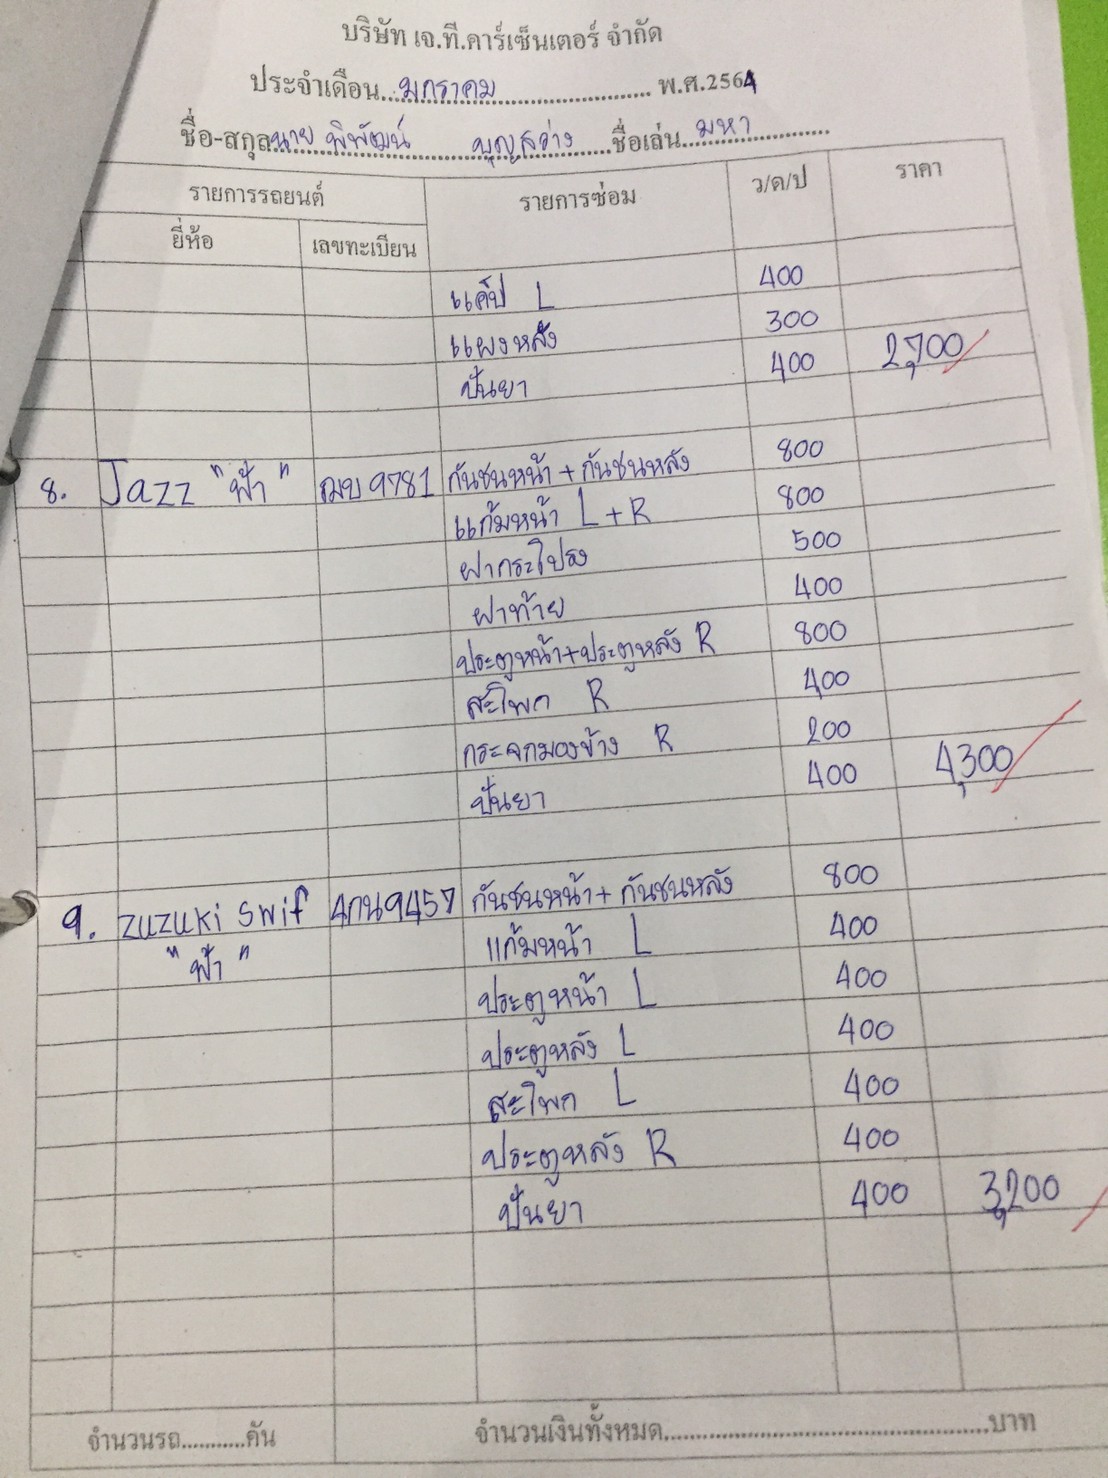 บริษัท เจ.ที.คาร์เซ็นเตอร์ จำกัด
ประจำเดือน...มกราคม.................... พ.ศ.2564
ชื่อ-สกุล นาย พิพัฒน์ บุญสว่าง ชื่อเล่น มหา
รายการรถยนต์ รายการซ่อม ว/ด/ป ราคา
ยี่ห้อ เลขทะเบียน
แค็ป L 400
แผงหลัง 300
ปั่นยา 400 2,700
8. Jazz "ฟ้า" ฌบ 9781 กันชนหน้า + กันชนหลัง 800
แก้มหน้า L + R 800
ฝากระโปรง 500
ฝาท้าย 400
ประตูหน้า+ประตูหลัง R 800
สะโพก R 400
กระจกมองข้าง R 200
ปั่นยา 400 4,300
9. ZUZUKi Swif 4กน9457 กันชนหน้า + กันชนหลัง 800
"ฟ้า" แก้มหน้า L 400
ประตูหน้า L 400
ประตูหลัง L 400
สะโพก L 400
ประตูหลัง R 400
ปั่นยา 400 3,200
จำนวนรถ...........คัน จำนวนเงินทั้งหมด..................................................บาท